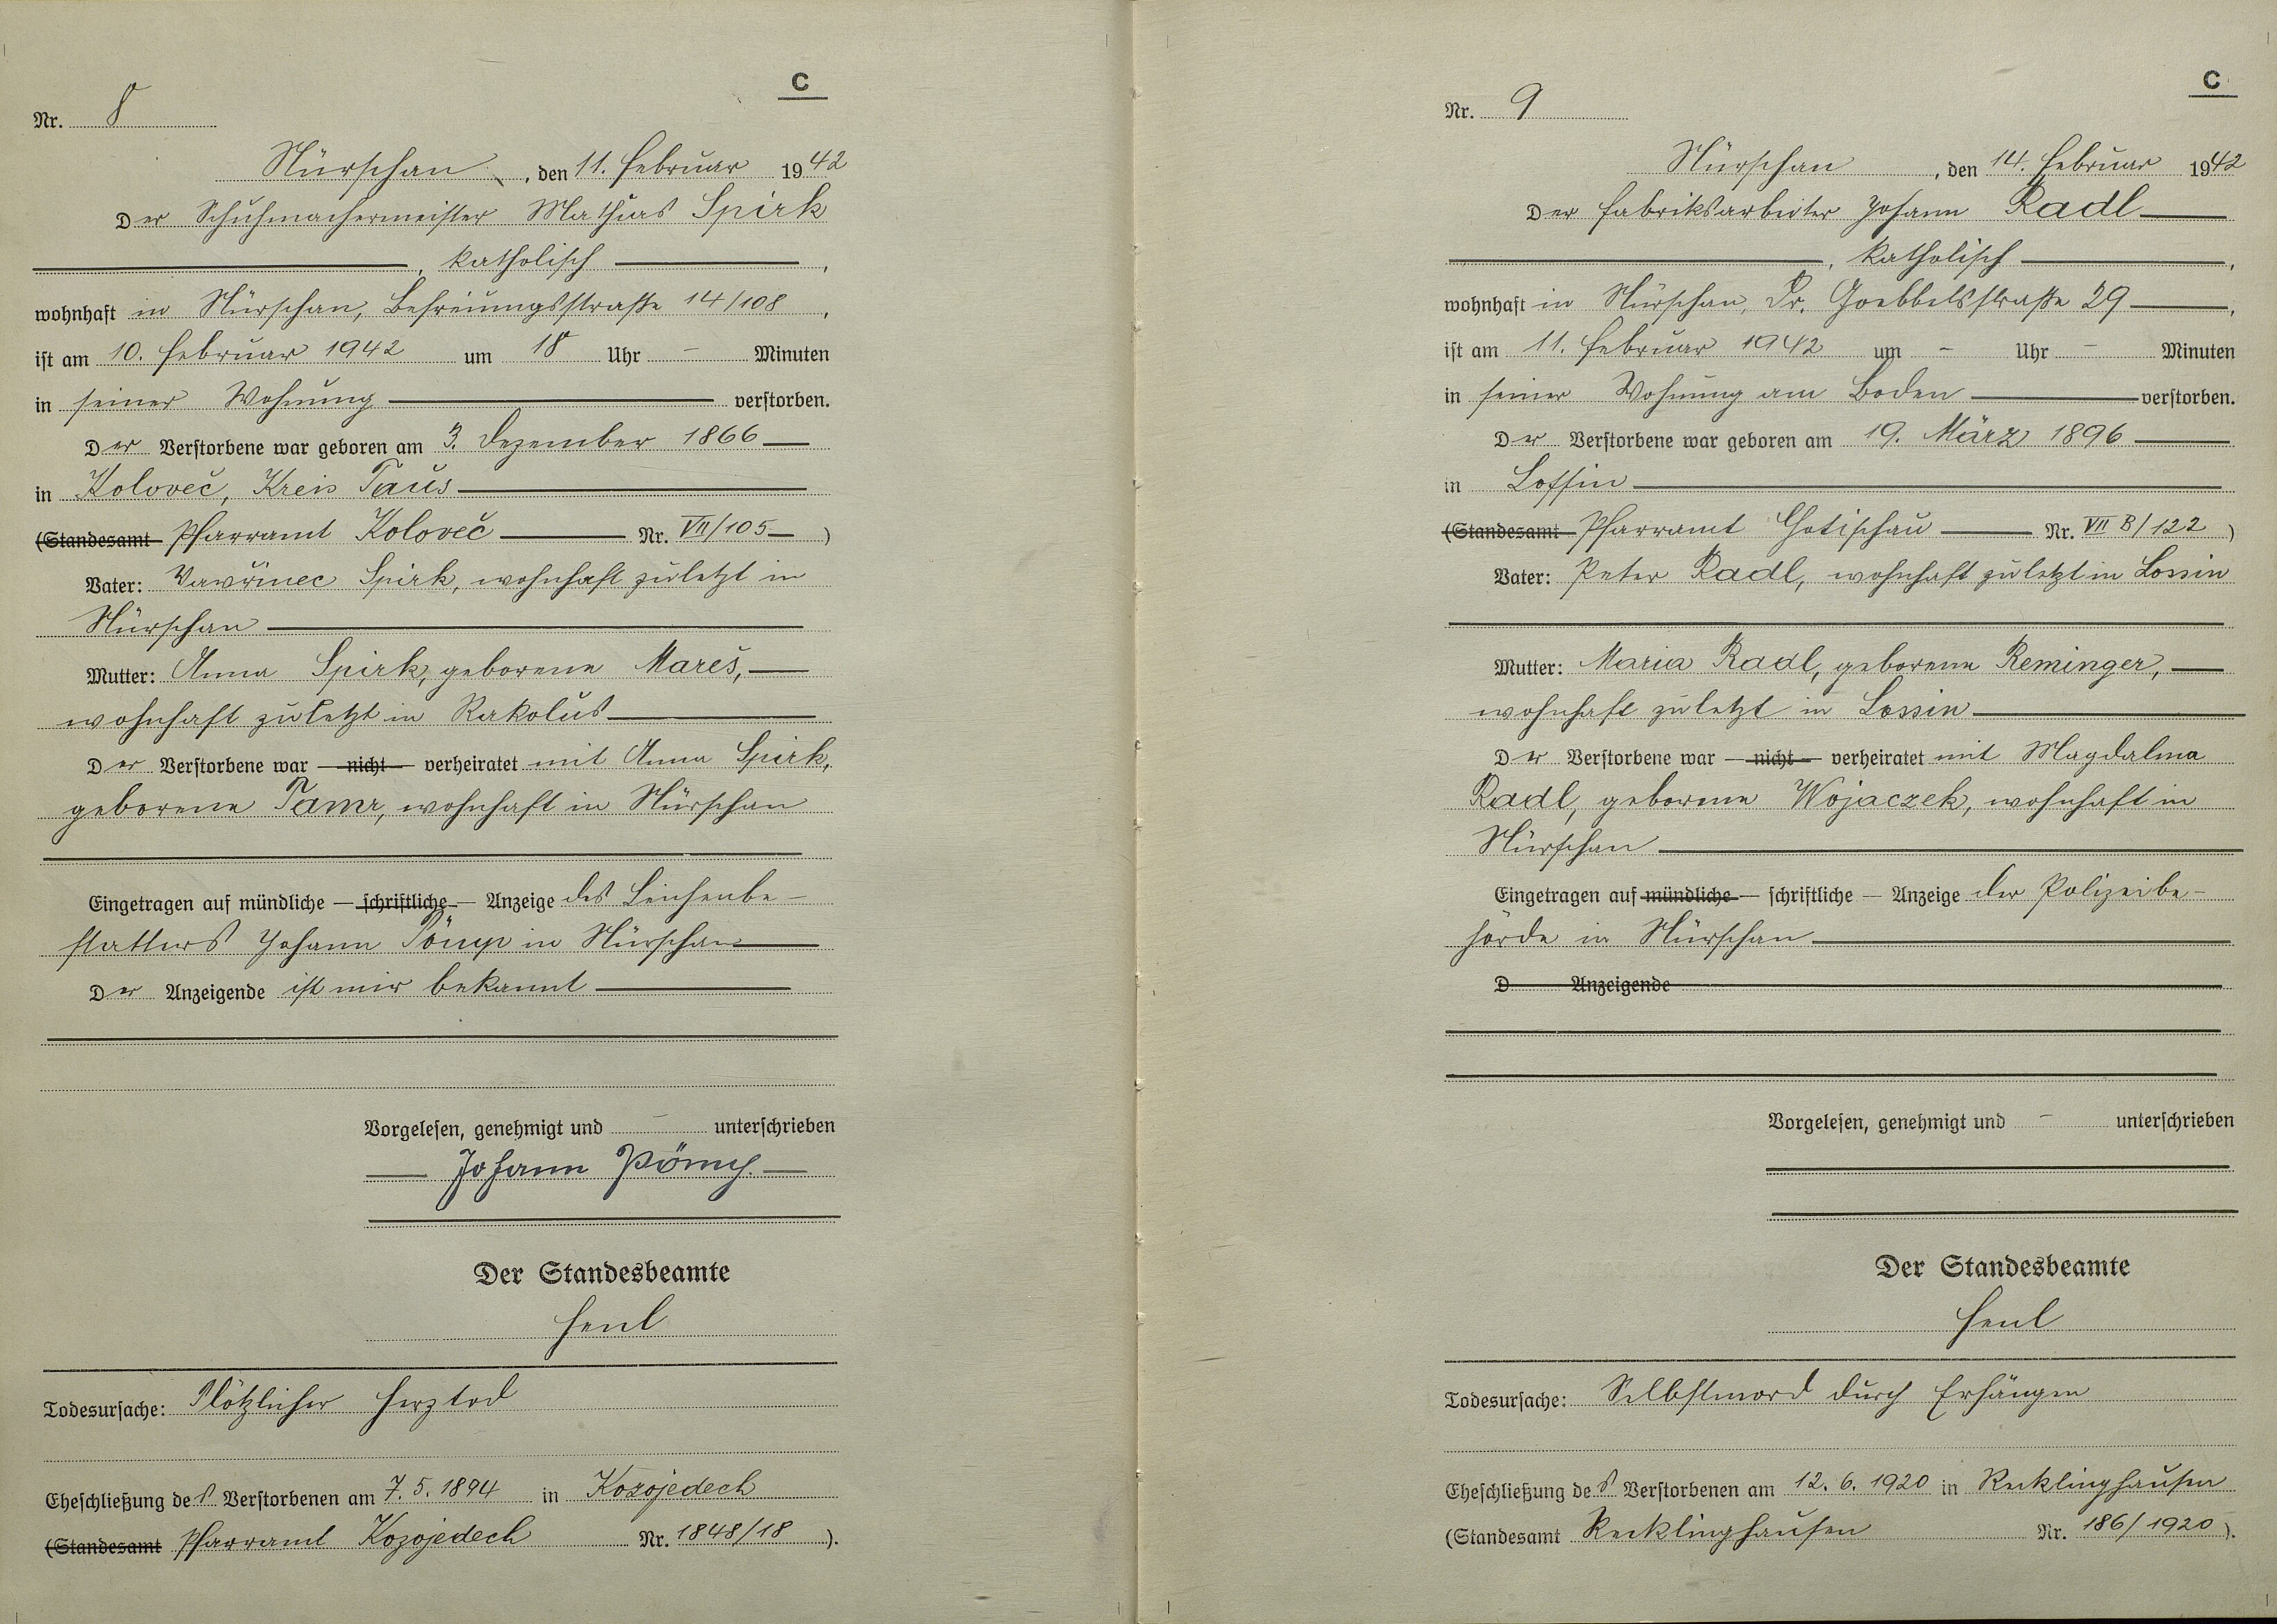 C
Nr. 8
Nürschan, den 11. Februar 1942
Der Schuhmachermeister Mathias Spirk
, katholisch,
wohnhaft in Nürschan, Befreiungsstraße 14/108,
ist am 10. Februar 1942 um 18 Uhr - Minuten
in seiner Wohnung verstorben.
Der Verstorbene war geboren am 3. Dezember 1866
in Koloveč, Kreis Taus
(Standesamt Pfarramt Koloveč Nr. VII/105)
Vater: Vavřinec Spirk, wohnhaft zuletzt in
Nürschan
Mutter: Anna Spirk, geborene Mareš,
wohnhaft zuletzt in Rakolus
Der Verstorbene war — nicht — verheiratet mit Anna Spirk,
geborene Tamr, wohnhaft in Nürschan
Eingetragen auf mündliche — schriftliche — Anzeige des Leichenbe-
statters Johann in Nürschan
Der Anzeigende ist mir bekannt
Vorgelesen, genehmigt und - unterschrieben
Johann
Der Standesbeamte
Henl
Todesursache: Plötzlicher Herztod
Eheschließung des Verstorbenen am 7. 5. 1894 in Kozojedech
(Standesamt Pfarramt Kozojedech Nr. 1848/18).
C
Nr. 9
Nürschan, den 14. Februar 1942
Der Fabriksarbeiter Johann Radl
, katholisch,
wohnhaft in Nürschan, Dr. Goebbelsstraße 29,
ist am 11. Februar 1942 um - Uhr - Minuten
in seiner Wohnung am Boden verstorben.
Der Verstorbene war geboren am 19. März 1896
in Lossin
(Standesamt Pfarramt Chotischau Nr. VII B/122)
Vater: Peter Radl, wohnhaft zuletzt in Lossin
Mutter: Maria Radl, geborene Reminger,
wohnhaft zuletzt in Lossin
Der Verstorbene war — nicht — verheiratet mit Magdalena
Radl, geborene Wojaczek, wohnhaft in
Nürschan
Eingetragen auf mündliche — schriftliche — Anzeige der Polizeibe-
hörde in Nürschan
D Anzeigende
Vorgelesen, genehmigt und - unterschrieben
Der Standesbeamte
Henl
Todesursache: Selbstmord durch Erhängen
Eheschließung des Verstorbenen am 12. 6. 1920 in Recklinghausen
(Standesamt Recklinghausen Nr. 186/1920).